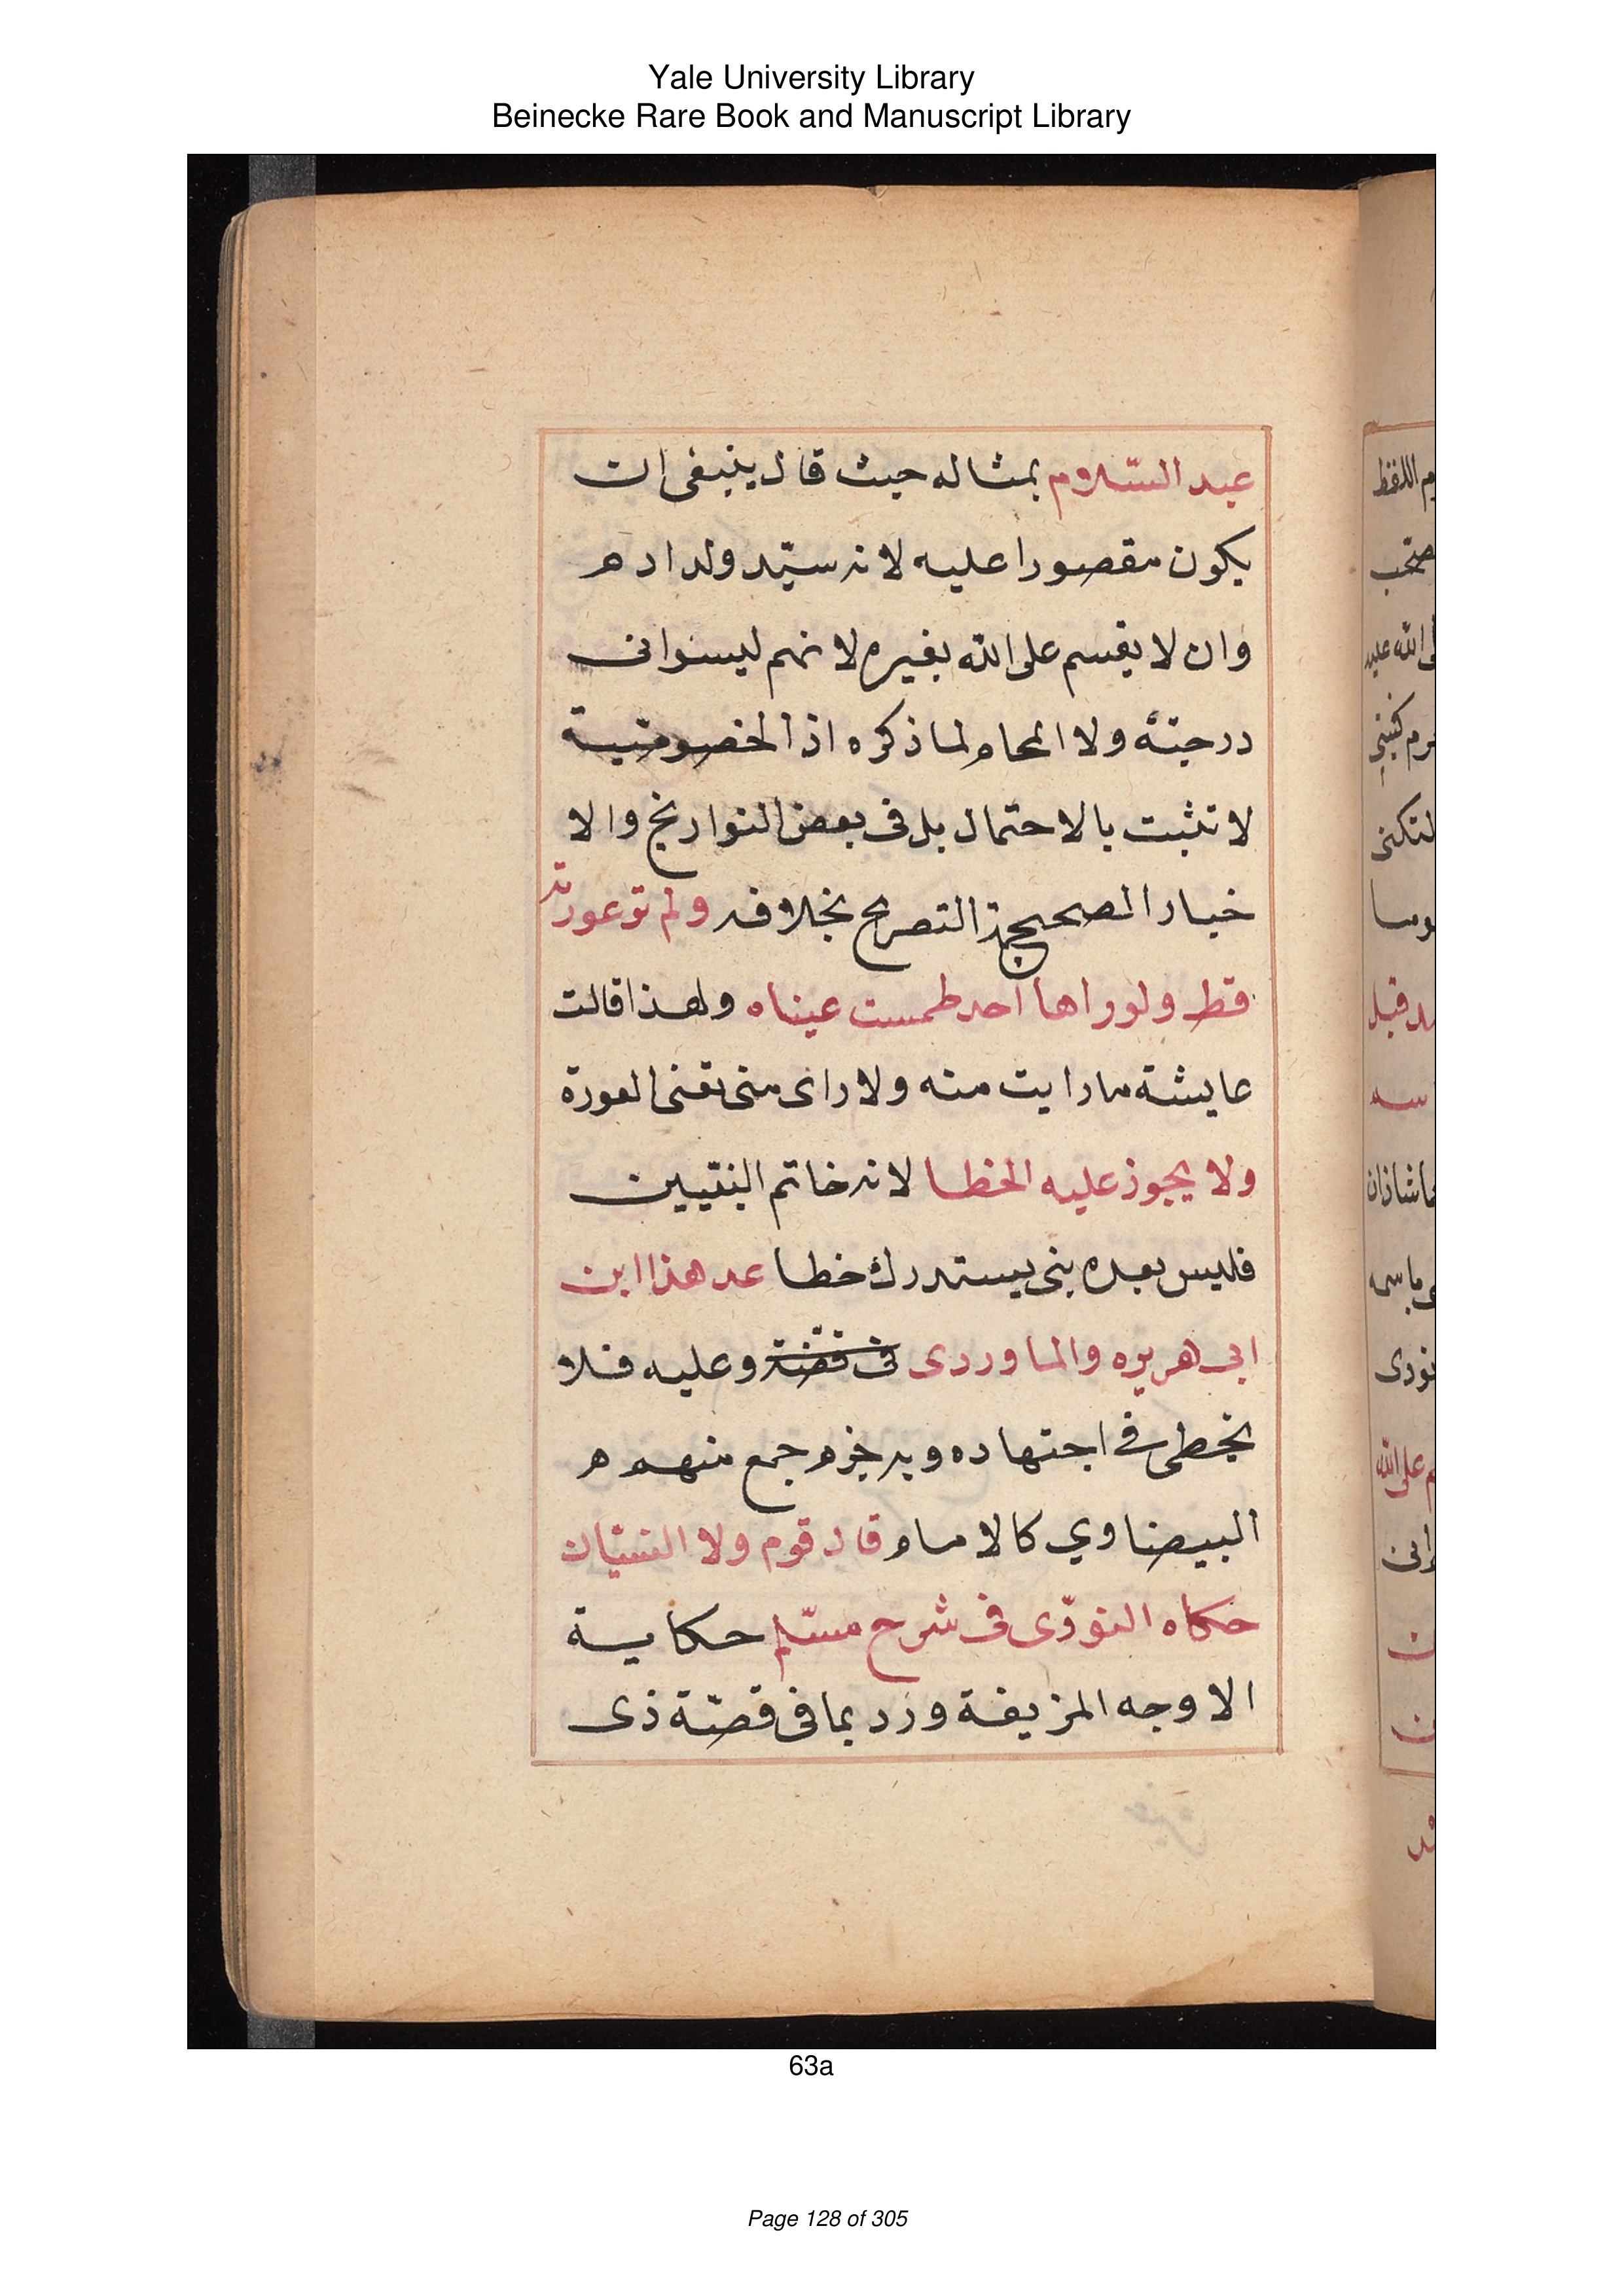 Yale University Library
Beinecke Rare Book and Manuscript Library
عبد السّلام بمثاله حيث قال ينبغى ان
يكون مقصورا عليه لانه سيّد ولد ادم
وان لا يقسم على الله بغيره لانهم ليسوا فى
درجته ولا لما ذكره اذ الخصوصية
لا تثبت بالاحتمال بل فى بعض التواريخ والا
خبار الصحيحة التصريح بخلافه ولم تر عورته
قط ولو راها احد طمست عيناه ولهذا قالت
عايشة ما رايت منه ولا راى منى تعنى العورة
ولا يجوز عليه الخطا لانه خاتم النبيين
فليس بعده نبى يستدرك خطا عد هذا ابن
ابى هريره والماوردى فى قصّة وعليه فلا
يخطى فى اجتهاده وبه جزم جمع منهم
البيضاوي كالامام قال قوم ولا النسيان
حكاه النووّى فى شرح مسّلم حكاية
الاوجه المزيفة ورد بما فى قصّة ذى
63a
Page 128 of 305